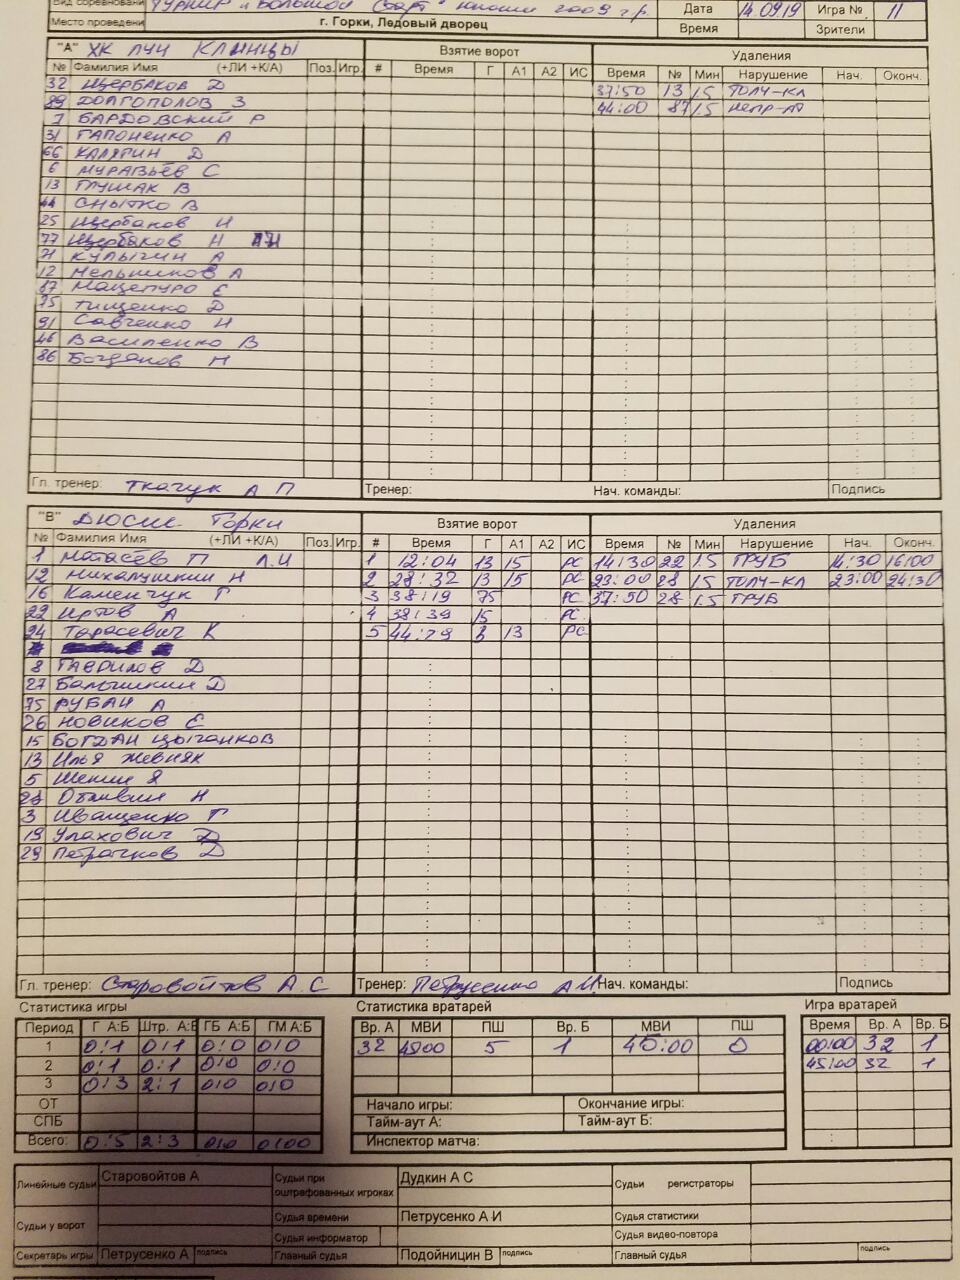 Вид соревнования Турнир "Большой Старт" юноши 2009 г.р. Дата 14.09.19 Игра № 11
Место проведения г. Горки, Ледовый дворец Время Зрители
"А" ХК ЛУЧ КЛИНЦЫ Взятие ворот Удаления
№ Фамилия Имя (+ЛИ +К/А) Поз. Игр. # Время Г А1 А2 ИС Время № Мин Нарушение Нач. Оконч.
32 Щербаков Д 37:50 13 1.5 ТОЛЧ-КЛ
89 ДОЛГОПОЛОВ З 44:00 87 1.5
7 БАРДОВСКИЙ Р
31 ГАПОНЕНКО А
66 КАЛЯГИН Д
6 МУРАВЬЁВ С
13 ГЛУШАК В
44 СНЫТКО В
25 Щербаков Н
77 Щербаков Н
71 КУЛЫГИН А
12 Мельников А
87 Мацепуро Е
75 Тищенко Д
91 Савченко Н
46 Василенко В
86 Богданов Н
Гл. тренер: Ткачук А П Тренер: Нач. команды: Подпись
"В" ДЮСШ Горки Взятие ворот Удаления
№ Фамилия Имя (+ЛИ +К/А) Поз. Игр. # Время Г А1 А2 ИС Время № Мин Нарушение Нач. Оконч.
1 П Л.И 1 12:04 13 15 РС 14:30 22 1.5 ГРУБ 14:30 16:00
12 Н 2 28:32 13 15 РС 23:00 28 1.5 ТОЛЧ-КЛ 23:00 24:30
16 Каменчук Г 3 38:19 75 РС 37:50 28 1.5 ГРУБ
22 Юртов А 4 38:39 15 РС
94 Тарасевич К 5 13 РС
8 ГАВРИЛОВ Д
27 Балышкин Д
75 РУБАН А
26 НОВИКОВ Е
15 БОГДАН Цыганков
13 Илья Жевняк
5 Шекин Я
28 Отливин Н
3 Иващенко Г
19 Улахович Д
29 Петрачков Д
Гл. тренер: Старовойтов А.С Тренер: Петрусенко А.И. Нач. команды: Подпись
Статистика игры Статистика вратарей Игра вратарей
Период Г А:Б Штр. А:Б ГБ А:Б ГМ А:Б Вр. А МВИ ПШ Вр. Б МВИ ПШ Время Вр. А Вр. Б
1 0:1 0:1 0:0 0:0 32 45:00 5 1 45:00 0 00:00 32 1
2 0:1 0:1 0:0 0:0 45:00 32 1
3 0:3 2:1 0:0 0:0
ОТ Начало игры: Окончание игры:
СПБ Тайм-аут А: Тайм-аут Б:
Всего: 0:5 2:3 0:0 0:00 Инспектор матча:
Линейные судьи Старовойтов А Судьи при оштрафованных игроках Дудкин А С Судьи регистраторы
Судьи у ворот Судья времени Петрусенко А И Судья статистики
Судья информатор Судья видео-повтора
Секретарь игры Петрусенко А подпись Главный судья Подойницин В подпись Главный судья подпись